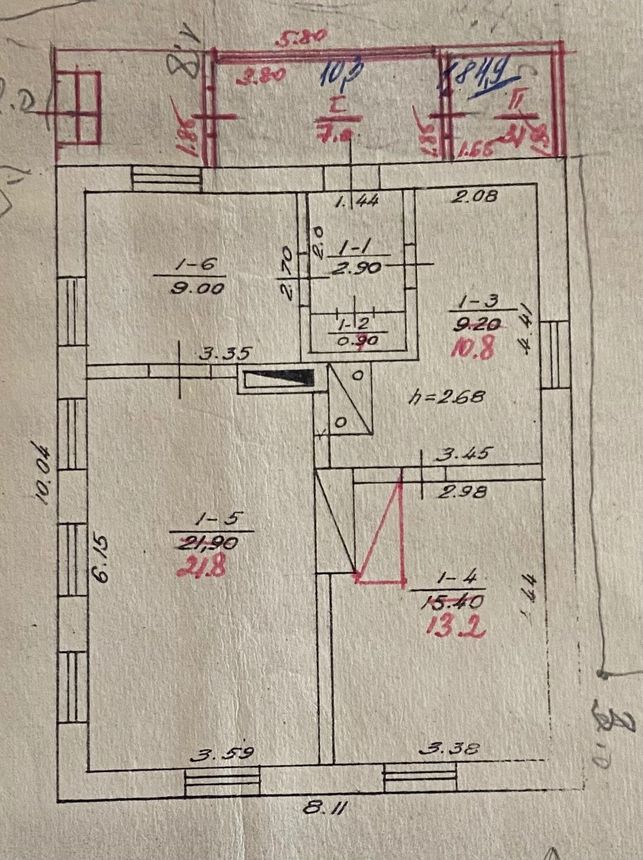 5.80
1.8
3.80
10,3
84,9
I
7.0
II
1.86
1.86
1.66
1.44
2.08
2.0
1-1
2.90
2.70
1-6
9.00
1-3
9.20
10.8
4.41
1-2
0.90
3.35
h=2.68
3.45
2.98
10.04
6.15
1-5
21,90
21.8
1-4
15.40
13.2
3.59
3.38
8.11